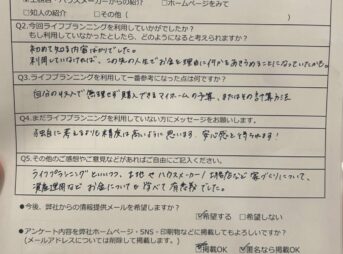 ハウスメーカーからの紹介 □ホームページをみて
□知人の紹介 □その他（ ）
Q2.今回ライフプランニングを利用していかがでしたか？
もし利用していなかったとしたら、どのようになると考えられますか？
初めて知る内容ばかりでした。
利用していなければ、この先の人生でお金を理由に何かをあきらめることになっていたかも。
Q3.ライフプランニングを利用して一番参考になった点は何ですか？
自分の収入で無理せず購入できるマイホームの予算、またはその計算方法
Q4.まだライフプランニングを利用していない方にメッセージをお願いします。
考えるよりも精度は高いように思います。安心感を得られます！
Q5.その他のご感想やご意見などがあればご自由にご記入ください。
ライフプランニングといいつつ、土地やハウスメーカー/工務店など家づくりについて、
資産運用などお金についても学べて有意義でした。
●今後、弊社からの情報提供メールを希望しますか？
☑希望する □希望しない
●アンケート内容を弊社ホームページ・SNS・印刷物などに掲載してもよろしいですか？
（メールアドレスについては削除して掲載します。） ☑掲載OK ☑匿名なら掲載OK